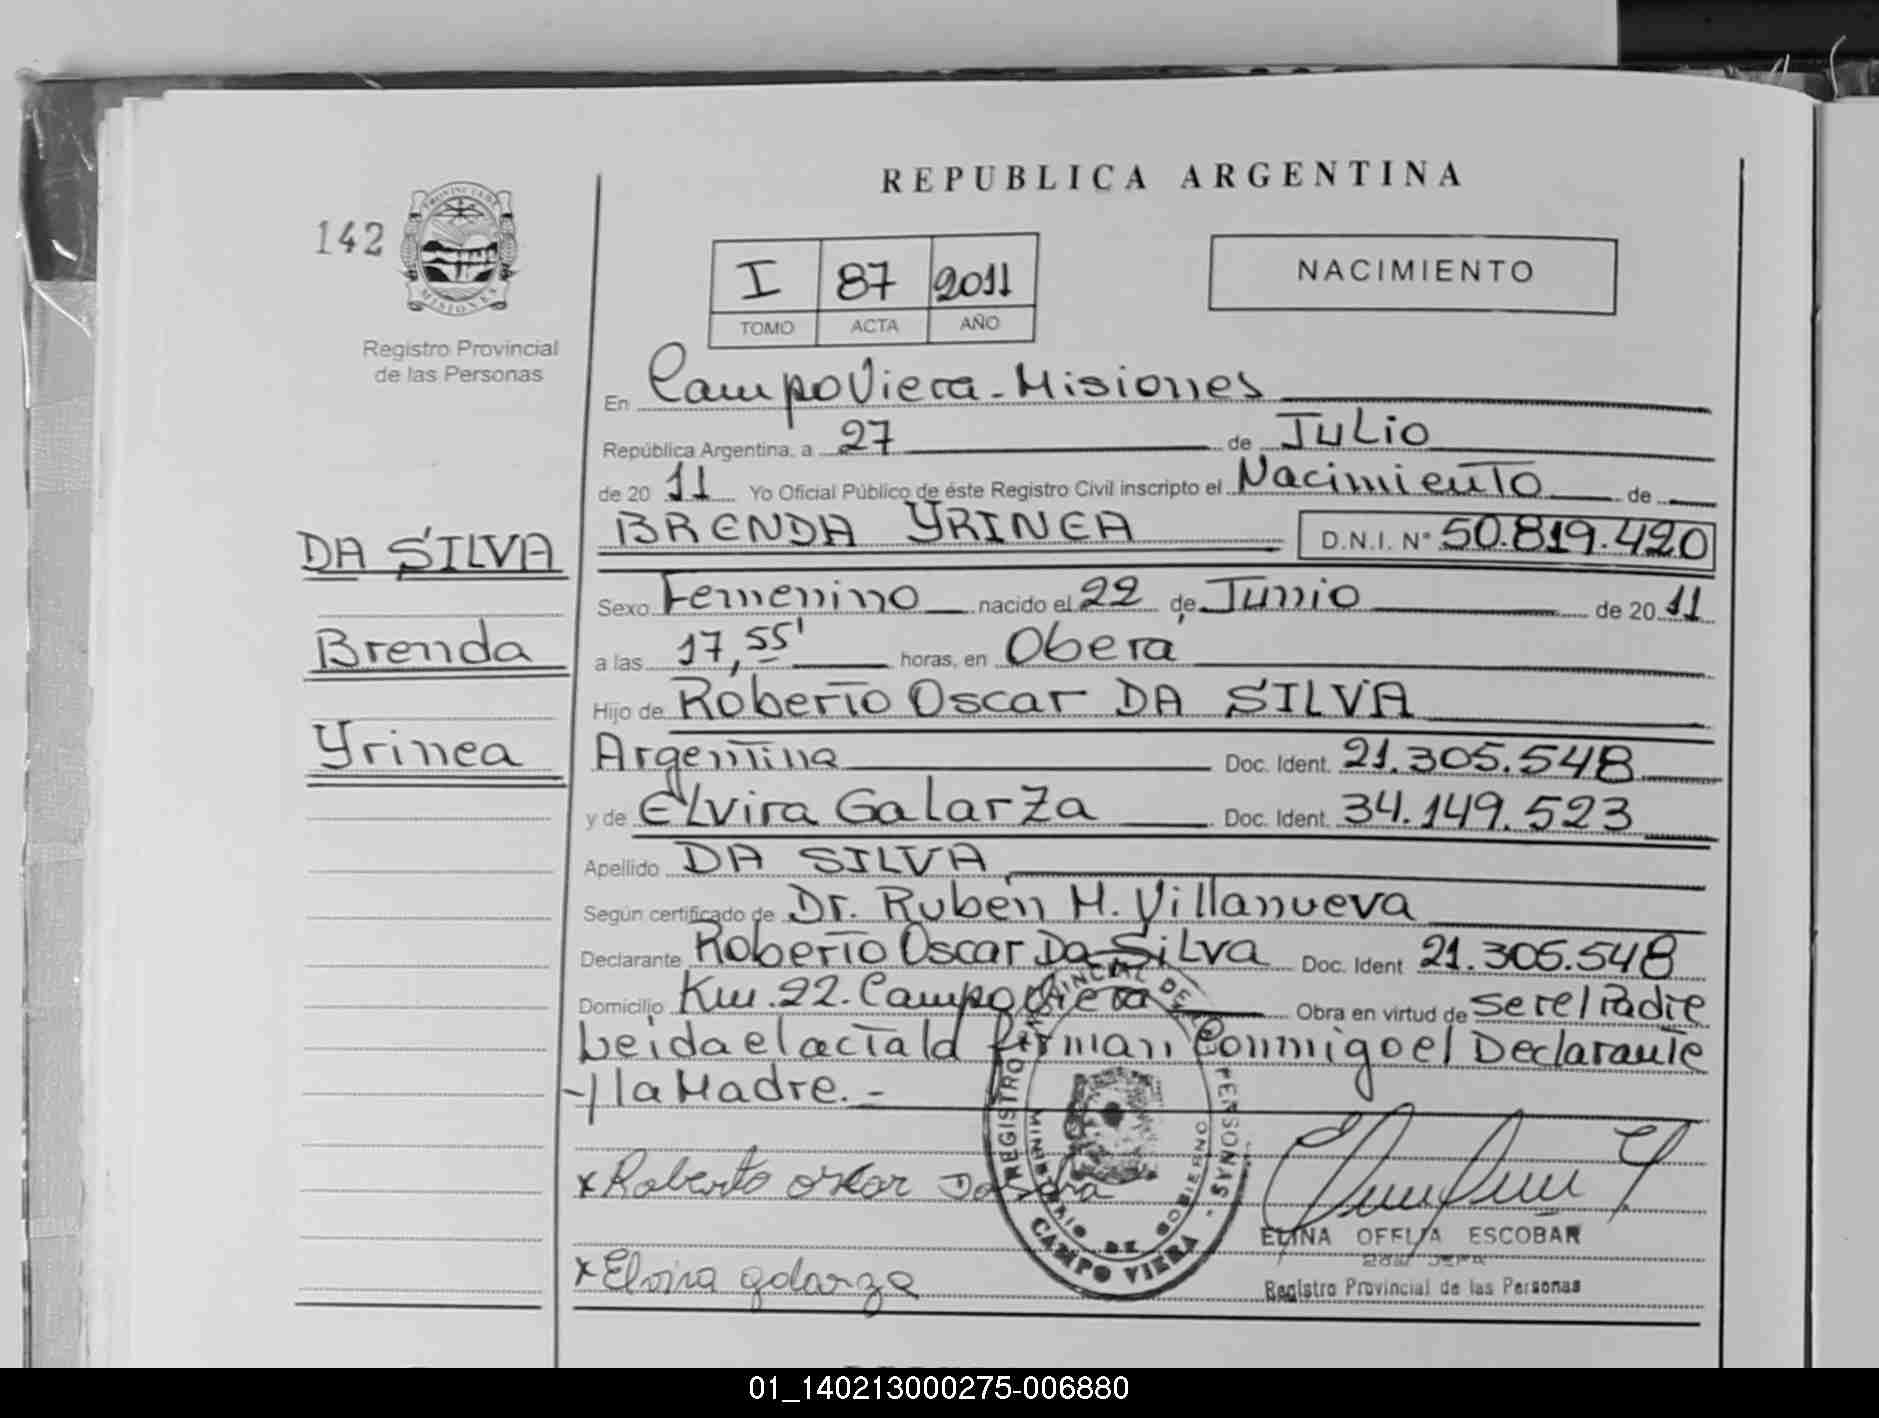 REPUBLICA ARGENTINA
142
PROVINCIA DE
MISIONES
Registro Provincial
de las Personas
I 87 2011
TOMO ACTA AÑO
NACIMIENTO
En Campo Viera - Misiones
República Argentina, a 27 de Julio
de 20 11 Yo Oficial Público de éste Registro Civil inscripto el Nacimiento de
DA SILVA
BRENDA YRINEA D.N.I. N° 50.819.420
Sexo Femenino nacido el 22 de Junio de 20 11
Brenda
a las 17,55' horas, en Oberá
Hijo de Roberto Oscar DA SILVA
Yrinea
Argentina Doc. Ident. 21.305.548
y de Elvira Galarza Doc. Ident. 34.149.523
Apellido DA SILVA
Según certificado de Dr. Rubén M. Villanueva
Declarante Roberto Oscar Da Silva Doc. Ident 21.305.548
Domicilio Km. 22. Campo Viera Obra en virtud de ser el Padre
Leida el acta la firman Conmigo el Declarante
y la Madre. -
REGISTRO PROVINCIAL DE LAS PERSONAS
MINISTERIO DE GOBIERNO
CAMPO VIERA
x Roberto oscar Dasilva
ELINA OFELIA ESCOBAR
Registro Provincial de las Personas
x Elvira galarza
01_140213000275-006880